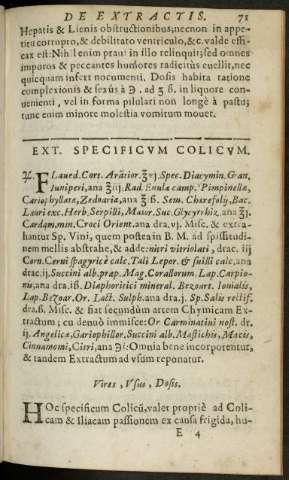 DE EXTRACTIS. 71
Hepatis & Lienis obstructiones, necnon in appe-
titu corrupto, & debilitato ventriculo, &c. valde effi-
cax est: Nihilenim praui in illo relinquit; sed omnes
improos & peccantes humores radicitùs euellit, nec
quicquam infert nocumenti. Dosis habita ratione
complexionis & sexùs à ℈. ad ʒ ß. in liquore con-
uenienti, vel in forma pilulari non longè à pastu;
tunc enim minore molestia vomitum mouet.
EXT. SPECIFICVM COLICVM.
Iuniperi, ana ʒiij. Rad. Enulæ camp. Pimpinellæ,
Cariophyllatæ, Zedoariæ, ana ʒ ß. Sem. Charefolij, Bac.
Lauri exc. Herb. Serpilli, Maior. Suc. Glycyrrhiz. ana ʒj.
Cardam. min. Croci Orient. ana dra. vj. Misc. & extra-
hantur Sp. Vini, quem postea in B. M. ad spissitudi-
nem mellis abstrahe, & adde: nitri vitriolati, drac. iij
Corn. Cerui spagyricè calc. Tali Lepor. & suilli calc. ana
drac. ij. Succini alb. præp. Mag. Corallorum. Lap. Carpio-
nis, ana dra. iß. Diaphoritici mineral. Bezoart. Iouialis,
Lap. Bezoar. Or. Lact. Sulph. ana dra. j. Sp. Salis rectif.
dra. ß. Misc. & fiat secundùm artem Chymicam Ex-
tractum; cu denuò immisce: Or Carminatiui nost. dr.
ij. Angelicæ, Gariophillor. Succini alb. Mastichis, Macis,
Cinnamomi, Citri, ana ℈ß: Omnia bene incorpotentur,
& tandem Extractum ad vsum reponatur.
Vires, Vsus, Dosis.
HOc specificum Colicũ, valet propriè ad Coli-
cam & Iliacam passionem ex causa frigida, hu-
E 4